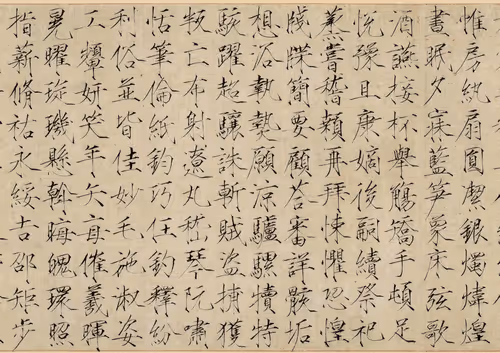 帷房紈扇圓潔銀燭煒煌
晝眠夕寐藍笋象床弦歌
酒讌接杯舉觴矯手頓足
悅豫且康嫡後嗣續祭祀
蒸嘗稽顙再拜悚懼恐惶
牋牒簡要顧答審詳骸垢
想浴執熱願涼驢騾犢特
駭躍超驤誅斬賊盜捕獲
叛亡布射遼丸嵇琴阮嘯
恬筆倫紙鈞巧任釣釋紛
利俗並皆佳妙毛施淑姿
工顰妍笑年矢每催羲暉
晃曜璇璣懸斡晦魄環照
指薪脩祐永綏吉邵矩步